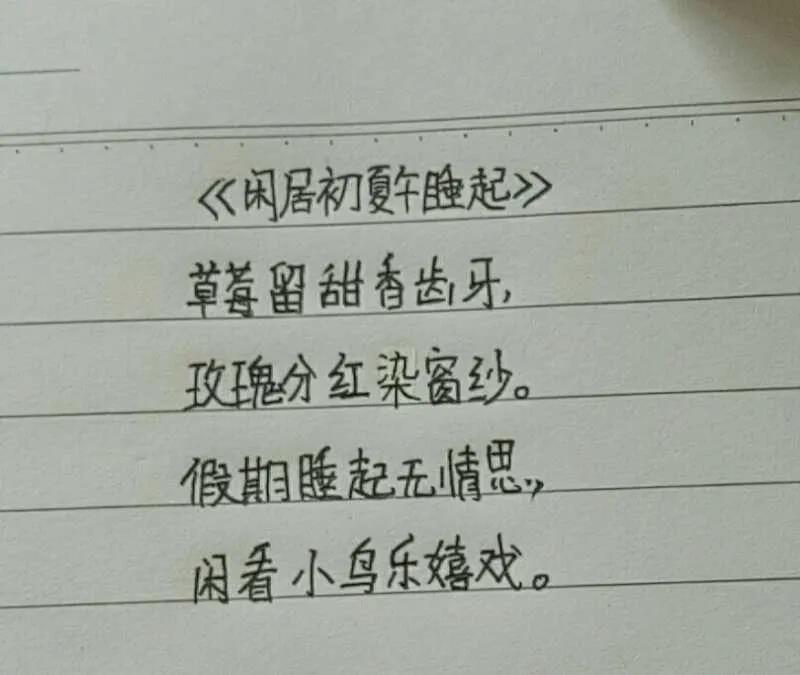 《闲居初夏午睡起》
草莓留甜香齿牙,
玫瑰分红染窗纱。
假期睡起无情思,
闲看小鸟乐嬉戏。